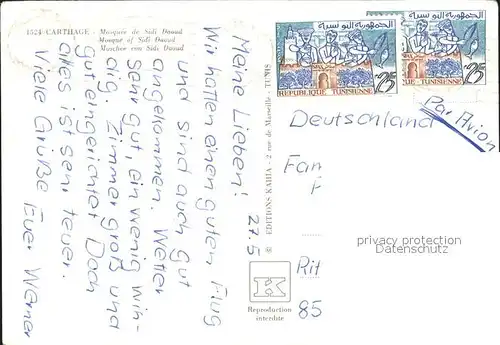 1524 CARTHAGE - Mosquée de Sidi Daoud
Mosque of Sidi Daoud
Moschee von Sidi Daoud
Meine Lieben!
Wir hatten einen guten Flug
und sind auch gut
angekommen. Wetter
sehr gut, ein wenig win-
dig. Zimmer groß und
gut eingerichtet Doch
alles ist sehr teuer.
Viele Grüße Euer Werner
275
© EDITIONS KAHIA - 2 rue de Marseille - TUNIS
K
Reproduction
interdite
الجمهورية التونسية
25
REPUBLIQUE TUNISIENNE
الجمهورية التونسية
25
REPUBLIQUE TUNISIENNE
Par Avion
Deutschland
Fam
Rit
85
privacy protection
Datenschutz